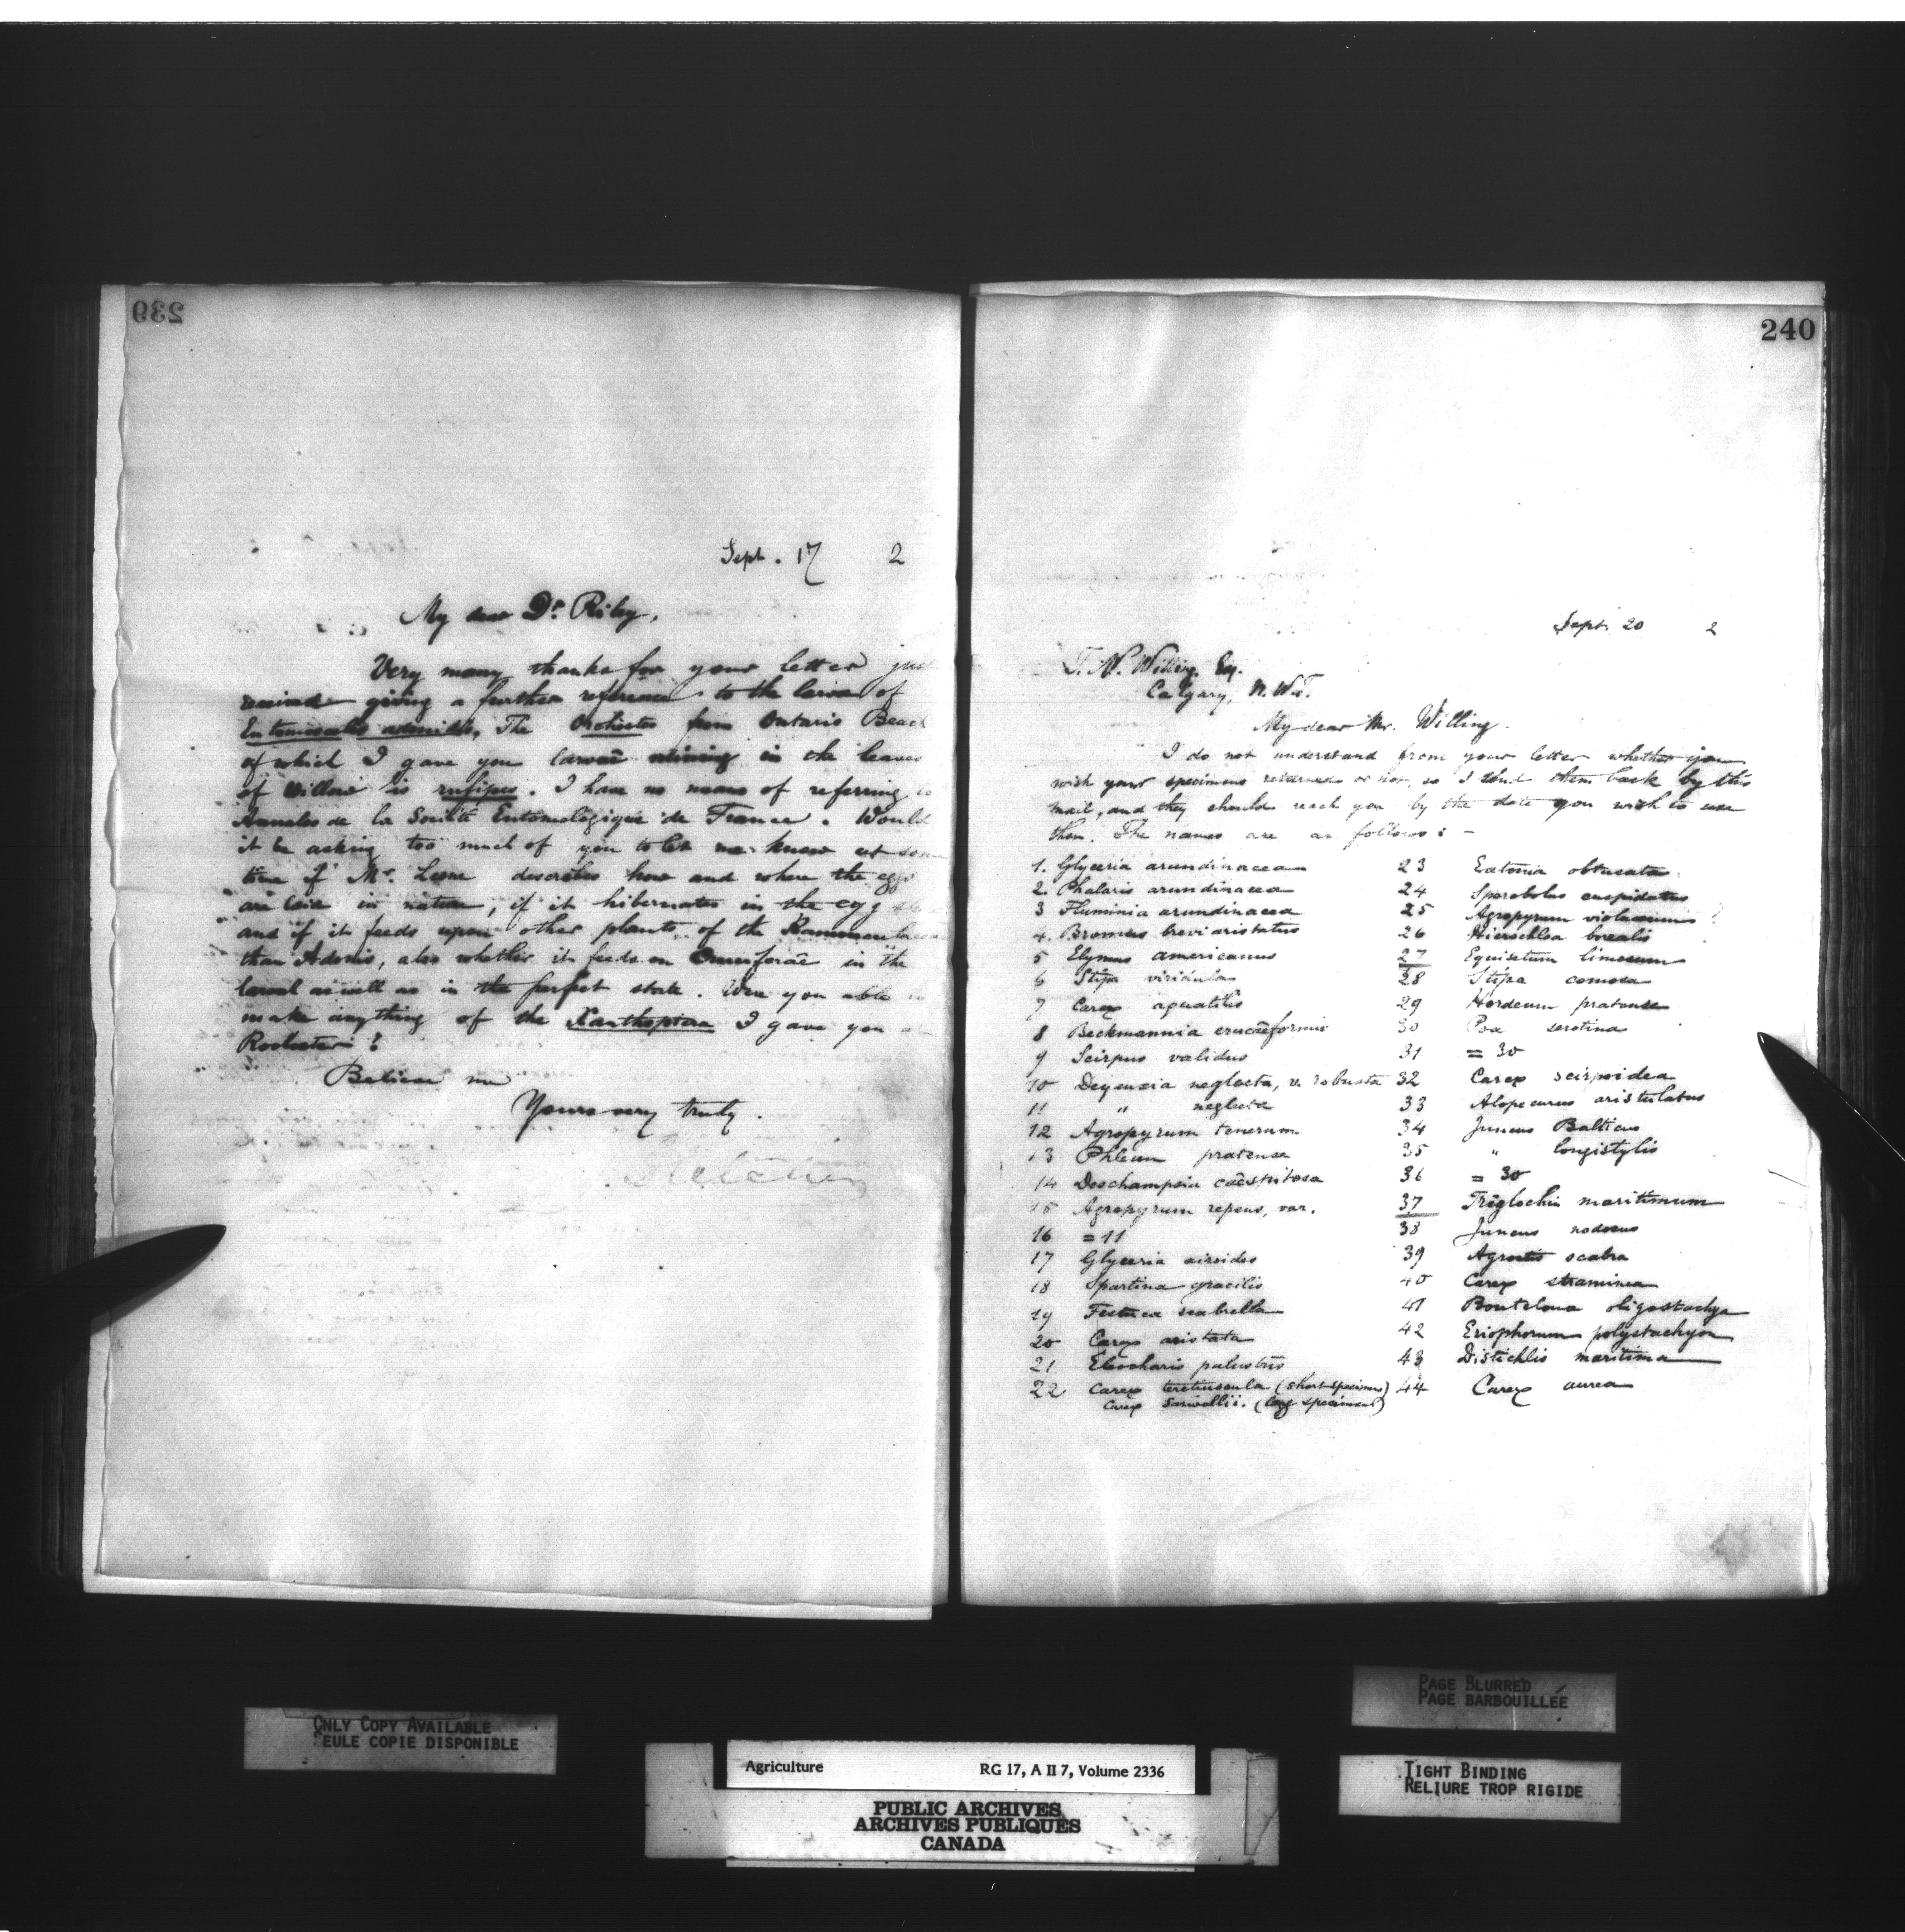 239
Sept. 17 2
My dear Dr. Riley,
Very many thanks for your letter just
received giving a further reference to the larva of
Entomoscelis adonidis. The Orchestes from Ontario Beach
of which I gave you larvae mining in the leaves
of Willow is rufipes. I have no means of referring to
Annales de la Société Entomologique de France. Would
it be asking too much of you to let me know at some
time if Mr. Lesne describes how and where the eggs
are laid in nature, if it hibernates in the egg
and if it feeds upon other plants of the
than Adonis, also whether it feeds on Cruciferae in the
larval as well as in the perfect state. Were you able to
make anything of the Xanthoptera I gave you
Rochester?
Believe me
Yours very truly.
Fletcher
240
Sept. 20 2
T. N. Willing, Esq.
Calgary, N.W.T.
My dear Mr. Willing.
I do not understand from your letter whether you
wish your specimens returned or not, so I send them back by this
mail, and they should reach you by the date you wish to use
them. The names are as follows: -
1. Glyceria arundinacea
2. Phalaris arundinacea
3 Fluminia arundinacea
4. Bromus breviaristatus
5 Elymus americanus
6 Stipa viridula
7 Carex aquatilis
8 Beckmannia erucaeformis
9 Scirpus validus
10 Deyeuxia neglecta, v. robusta
11 " neglecta
12 Agropyrum tenerum
13 Phleum pratense
14 Deschampsia caespitosa
15 Agropyrum repens, var.
16 = 11
17 Glyceria airoides
18 Spartina gracilis
19 Festuca scabrella
20 Carex aristata
21 Eleocharis palustris
22 Carex teretiuscula (short specimens)
Carex sarwellii. (long specimens)
23 Eatonia obtusata
24 Sporobolus cuspidatus
25 Agropyrum violaceum ?
26 Hierochloa borealis
27 Equisetum limosum
28 Stipa comosa
29 Hordeum pratense
30 Poa serotina
31 = 30
32 Carex scirpoidea
33 Alopecurus aristulatus
34 Juncus Balticus
35 " longistylis
36 = 30
37 Triglochin maritimum
38 Juncus nodosus
39 Agrostis scabra
40 Carex straminea
41 Bouteloua oligostachya
42 Eriophorum polystachyon
43 Distichlis maritima
44 Carex aurea
ONLY COPY AVAILABLE
SEULE COPIE DISPONIBLE
PAGE BLURRED
PAGE BARBOUILLÉE
TIGHT BINDING
RELIURE TROP RIGIDE
Agriculture RG 17, A II 7, Volume 2336
PUBLIC ARCHIVES
ARCHIVES PUBLIQUES
CANADA